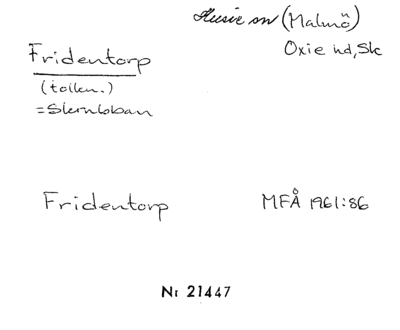 Husie sn (Malmö)
Oxie hd, Sk
Fridentorp
(tolkn.)
= Stenloban
Fridentorp
MFÅ 1961:86
Nr 21447